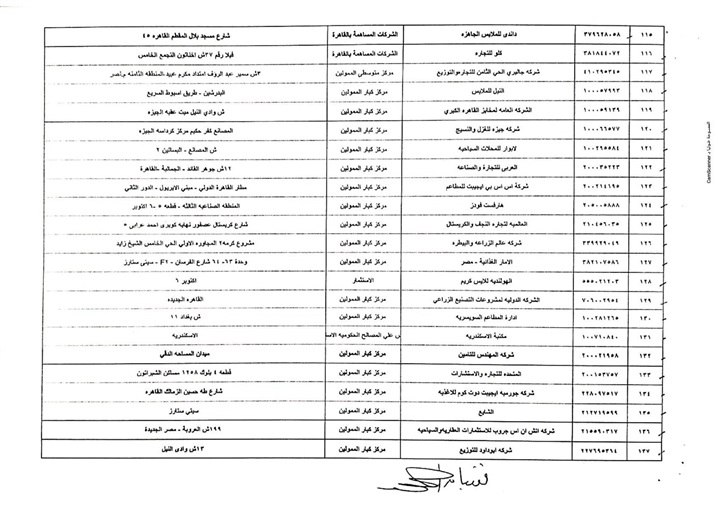 ١١٥ ٣٧٩٦٢٨٠٥٨ داندى للملابس الجاهزه الشركات المساهمة بالقاهرة شارع مسجد بلال المقطم القاهره ٤٥
١١٦ ٣٨١٨٤٤٠٧٢ كلو للتجاره الشركات المساهمة بالقاهرة فيلا رقم ٢٧ش اخناتون التجمع الخامس
١١٧ ٤١٠٢٩٥٣٤٥ شركه جالبري الحي الثامن للتجارهوالتوزيع مركز متوسطي الممولين ٣ش سمير عبد الروف امتداد مكرم عبيد-المنطقه الثامنه
١١٨ ١٠٠٠٠٥٧٩٩٣ النيل للملابس مركز كبار الممولين البدرشين - طريق اسيوط السريع
١١٩ ١٠٠٠٥٩١٣٩ الشركه العامه لمخابز القاهره الكبري مركز كبار الممولين ش وادي النيل ميت عقبه الجيزه
١٢٠ ١٠٠٠٦٦٥٧٧ شركه جيزه للغزل والنسيج مركز كبار الممولين المصانع كفر حكيم مركز كرداسه الجيزه
١٢١ ١٠٠٢٩٥٥٨٤ لابوار للمحلات السياحيه مركز كبار الممولين ش المصانع - البساتين ٢
١٢٢ ٢٠٠٠٣٥٢٢٣ العربي للتجارة والصناعه مركز كبار الممولين ١٢ش جوهر القائد - الجمالية -القاهرة
١٢٣ ٢٠٠٢١٤٦٩٥ شركة اس اس بي ايجيبت للمطاعم مركز كبار الممولين مطار القاهرة الدولي - مبني الايربول - الدور الثاني
١٢٤ ٢٠٥٠٠٥٨٨٨ هارفست فودز مركز كبار الممولين المنطقه الصناعيه الثالثه - قطعه ٥ -٦ اكتوبر
١٢٥ ٢١٠٤٥٦٠٣٥ العالميه لتجاره النجف والكريستال مركز كبار الممولين شارع كريستال عصفور نهايه كوبرى احمد عرابى ٥
١٢٦ ٣٣٩٩٢٩٠٤٩ شركه عالم الزراعه والبيطره مركز كبار الممولين مشروع كرمه٢ المجاوره الاولي الحي الخامس الشيخ زايد
١٢٧ ٣٨٢١٠٧٥٨٦ الامار الغذائية - مصر مركز كبار الممولين وحدة ٦٣- ٦٤ شارع الفرسان - F٢ - سيتى ستارز
١٢٨ ٥٥٥٠٢١٢٠٣ الهولنديه للايس كريم الاستثمار اكتوبر ٦
١٢٩ ٧٠٦٠٠٢٩٥٤ الشركه الدوليه لمشروعات التصنيع الزراعي مركز كبار الممولين القاهره الجديده
١٣٠ ١٠٠٢٨١٢٦٥ ادارة المطاعم السويسريه مركز كبار الممولين ش بغداد ١١
١٣١ ١٠٠٧١٠٨٤٠ مكتبة الاسكندريه س علي المصالح الحكوميه الاسك الاسكندريه
١٣٢ ٢٠٠٠٢١٩٥٨ شركه المهندس للتامين مركز كبار الممولين ميدان المساحه الدقي
١٣٣ ٢٠٠١٥٣٧٥٧ المتحده للتجاره والاستشارات مركز كبار الممولين قطعه ٤ بلوك ١٢٥٨ مساكن الشيراتون
١٣٤ ٢٢٨٠٩٧٥١٧ شركه جورميه ايجيبت دوت كوم للاغذيه مركز كبار الممولين شارع طه حسين الزمالك القاهره
١٣٥ ٢١٢٧١٩٥٩٩ الشايع مركز كبار الممولين سيتي ستارز
١٣٦ ٢١٥٥٩٠٣١٧ شركه اتش ان اس جروب للاستثمارات العقاريهوالسياحيه مركز كبار الممولين ١٩٩ش العروبة - مصر الجديدة
١٣٧ ٢٢٧٦٩٥٣٦٤ شركه ابوداود للتوزيع مركز كبار الممولين ١٣ش وادى النيل
CamScanner الممسوحة ضوئيا بـ